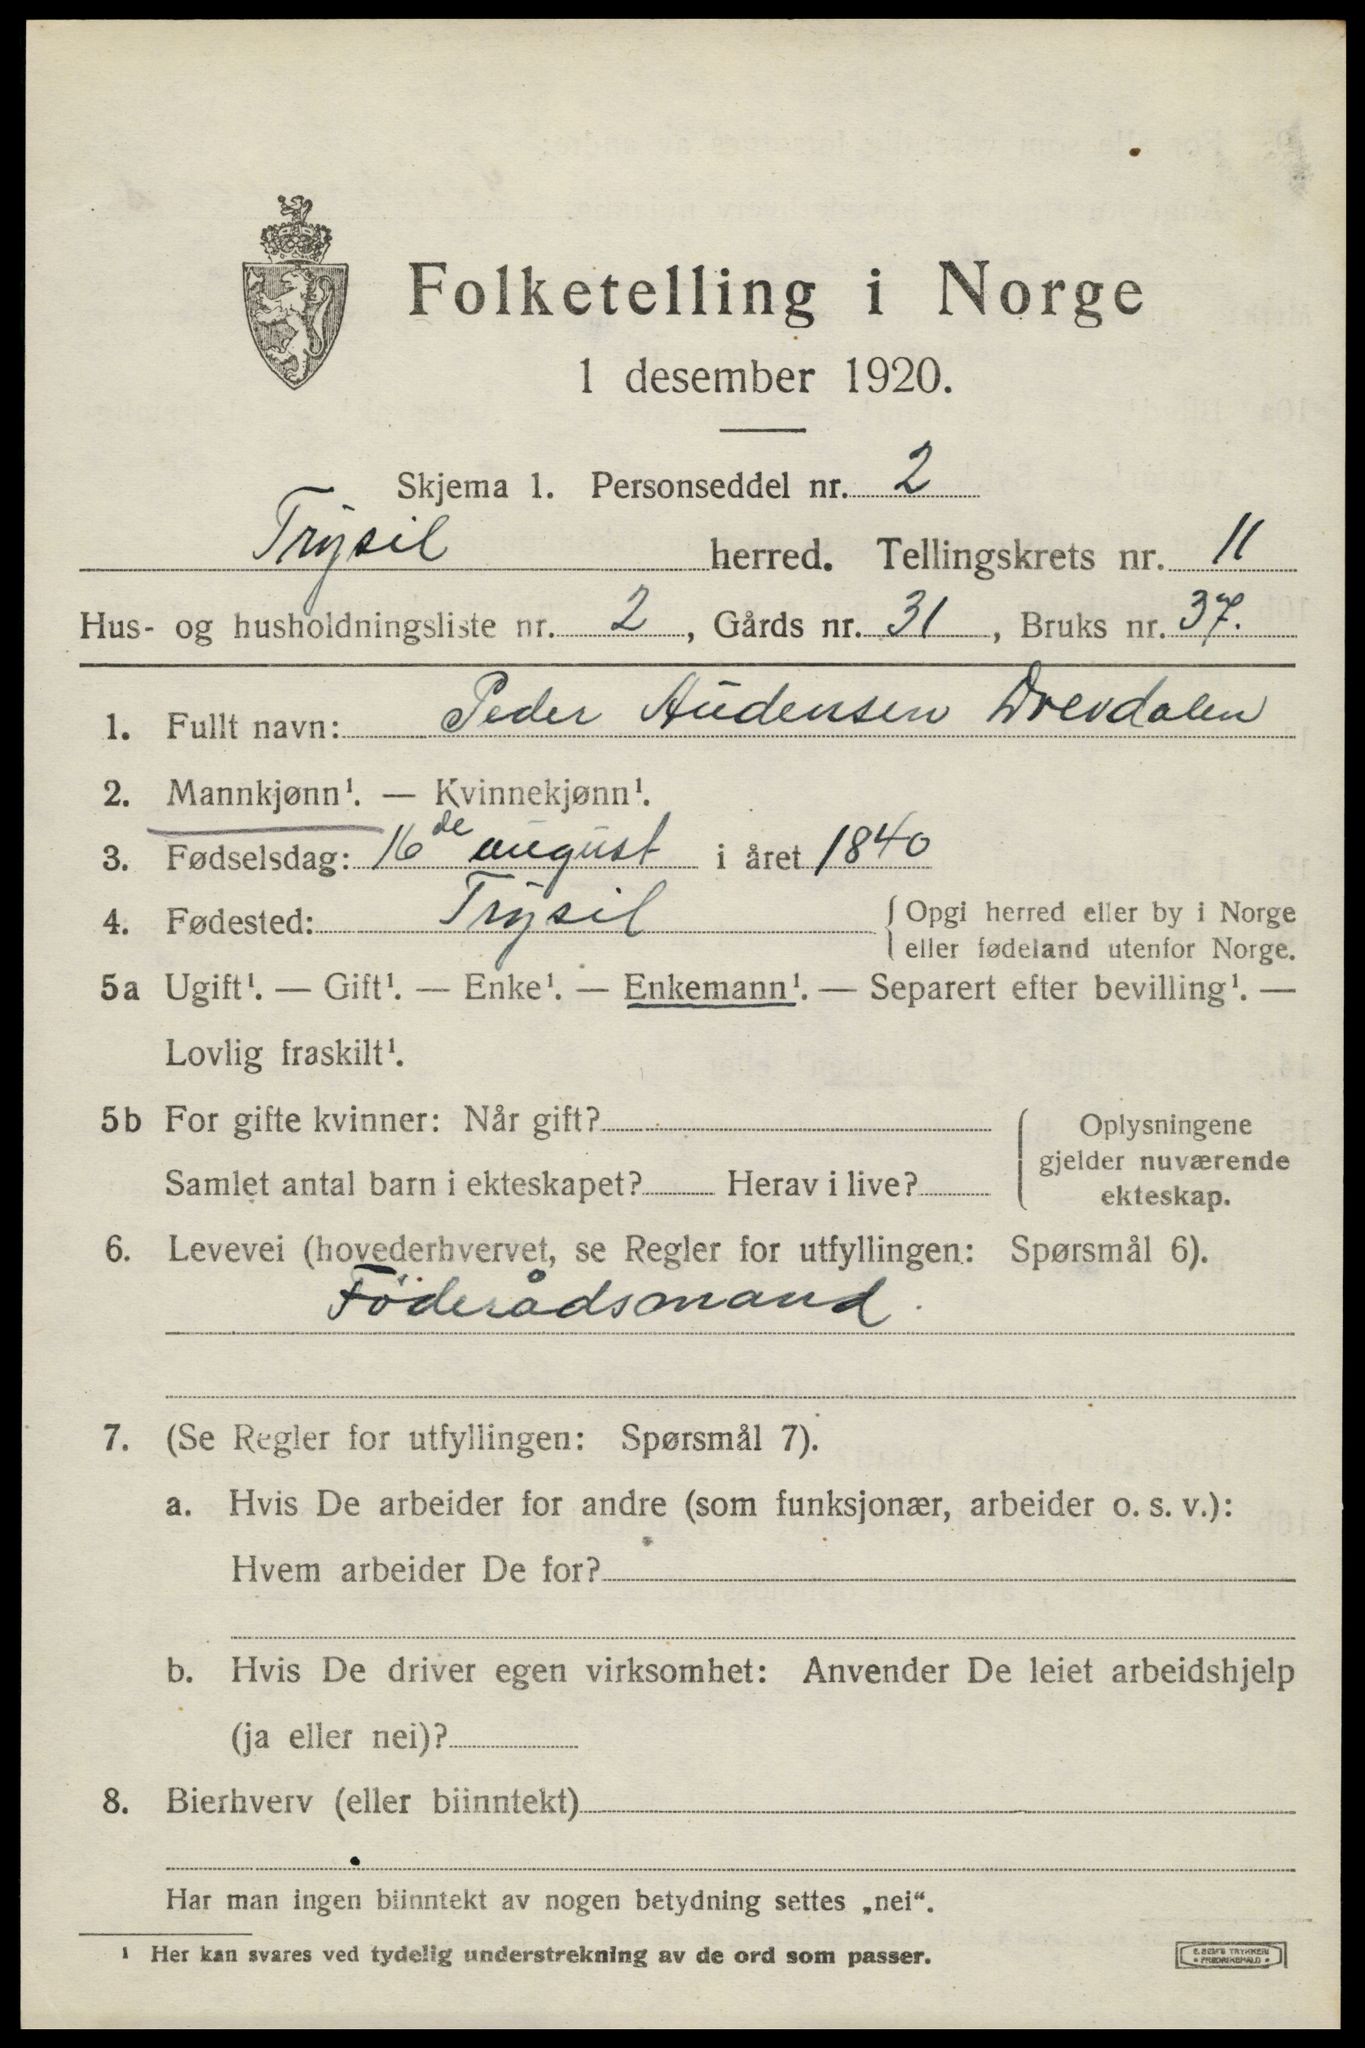 Folketelling i Norge
1 desember 1920.
Skjema 1. Personseddel nr. 2
Trysil herred. Tellingskrets nr. 11
Hus- og husholdningsliste nr. 2, Gårds nr. 31, Bruks nr. 37.
1. Fullt navn: Peder Audensen Drevdalen
2. Mannkjønn¹. — Kvinnekjønn¹.
3. Fødselsdag: 16de august i året 1840
4. Fødested: Trysil { Opgi herred eller by i Norge
eller fødeland utenfor Norge.
5a Ugift¹. — Gift¹. — Enke¹. — Enkemann¹. — Separert efter bevilling¹. —
Lovlig fraskilt¹.
5b For gifte kvinner: Når gift?
Samlet antal barn i ekteskapet? Herav i live?
Oplysningene
gjelder nuværende
ekteskap.
6. Levevei (hovederhvervet, se Regler for utfyllingen: Spørsmål 6).
Föderådsmand.
7. (Se Regler for utfyllingen: Spørsmål 7).
a. Hvis De arbeider for andre (som funksjonær, arbeider o. s. v.):
Hvem arbeider De for?
b. Hvis De driver egen virksomhet: Anvender De leiet arbeidshjelp
(ja eller nei)?
8. Bierhverv (eller biinntekt)
Har man ingen biinntekt av nogen betydning settes „nei“.
¹ Her kan svares ved tydelig understrekning av de ord som passer.
E. SEM'S TRYKKERI
FREDRIKSHALD